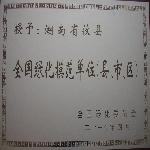 授予：湖南省攸县
全国绿化模范单位（县、市、区）
全国绿化委员会